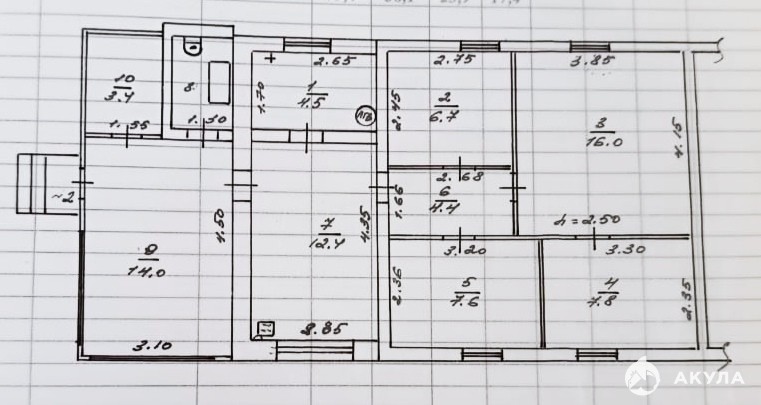 10
3.4
1.35
8
1.30
1
4.5
2.65
1.70
АГВ
2
6.7
2.75
2.45
3
16.0
3.85
4.15
h=2.50
6
4.4
2.68
1.66
~2
9
14.0
4.50
3.10
7
12.4
4.35
2.85
5
7.6
3.20
2.36
4
7.8
3.30
2.35
АКУЛА